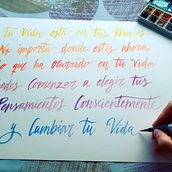 Tu Vida está en tus Manos
No importa donde estés ahora
Lo que ha ocurrido en tu Vida
Puedes Comenzar a elegir tus
Pensamientos Conscientemente
y Cambiar tu Vida